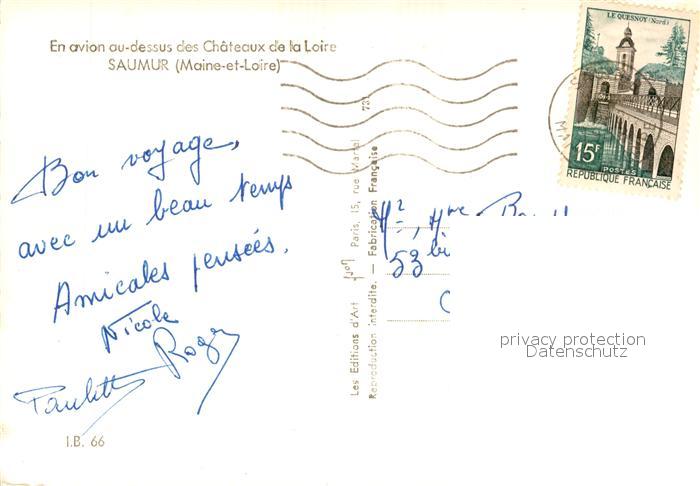 En avion au-dessus des Châteaux de la Loire
SAUMUR (Maine-et-Loire)
LE QUESNOY (Nord)
15F
POSTES
REPUBLIQUE FRANÇAISE
Bon voyage,
avec un beau temps
Amicales pensées.
Nicole
Roger
Paulette
I.B. 66
Les Editions d'Art Yvon Paris, 15, rue Martel
Reproduction interdite. — Fabrication Française
Mr, Mme
53 bi
privacy protection
Datenschutz